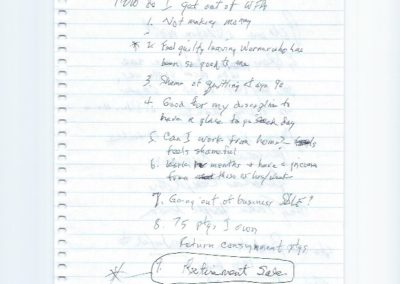 How do I get out of WFA
1. Not making money
* 2. Feel guilty leaving Worm who has
been so good to me
3. Shame of quitting at age 90
4. Good for my discipline to
have a place to go each day
5. Can I work from home?
feels shameful
6. Work months + have a
from this or
7. Going out of business SALE?
8. 75 ptgs I own
Return consignment ptgs
* 9. Retirement Sale